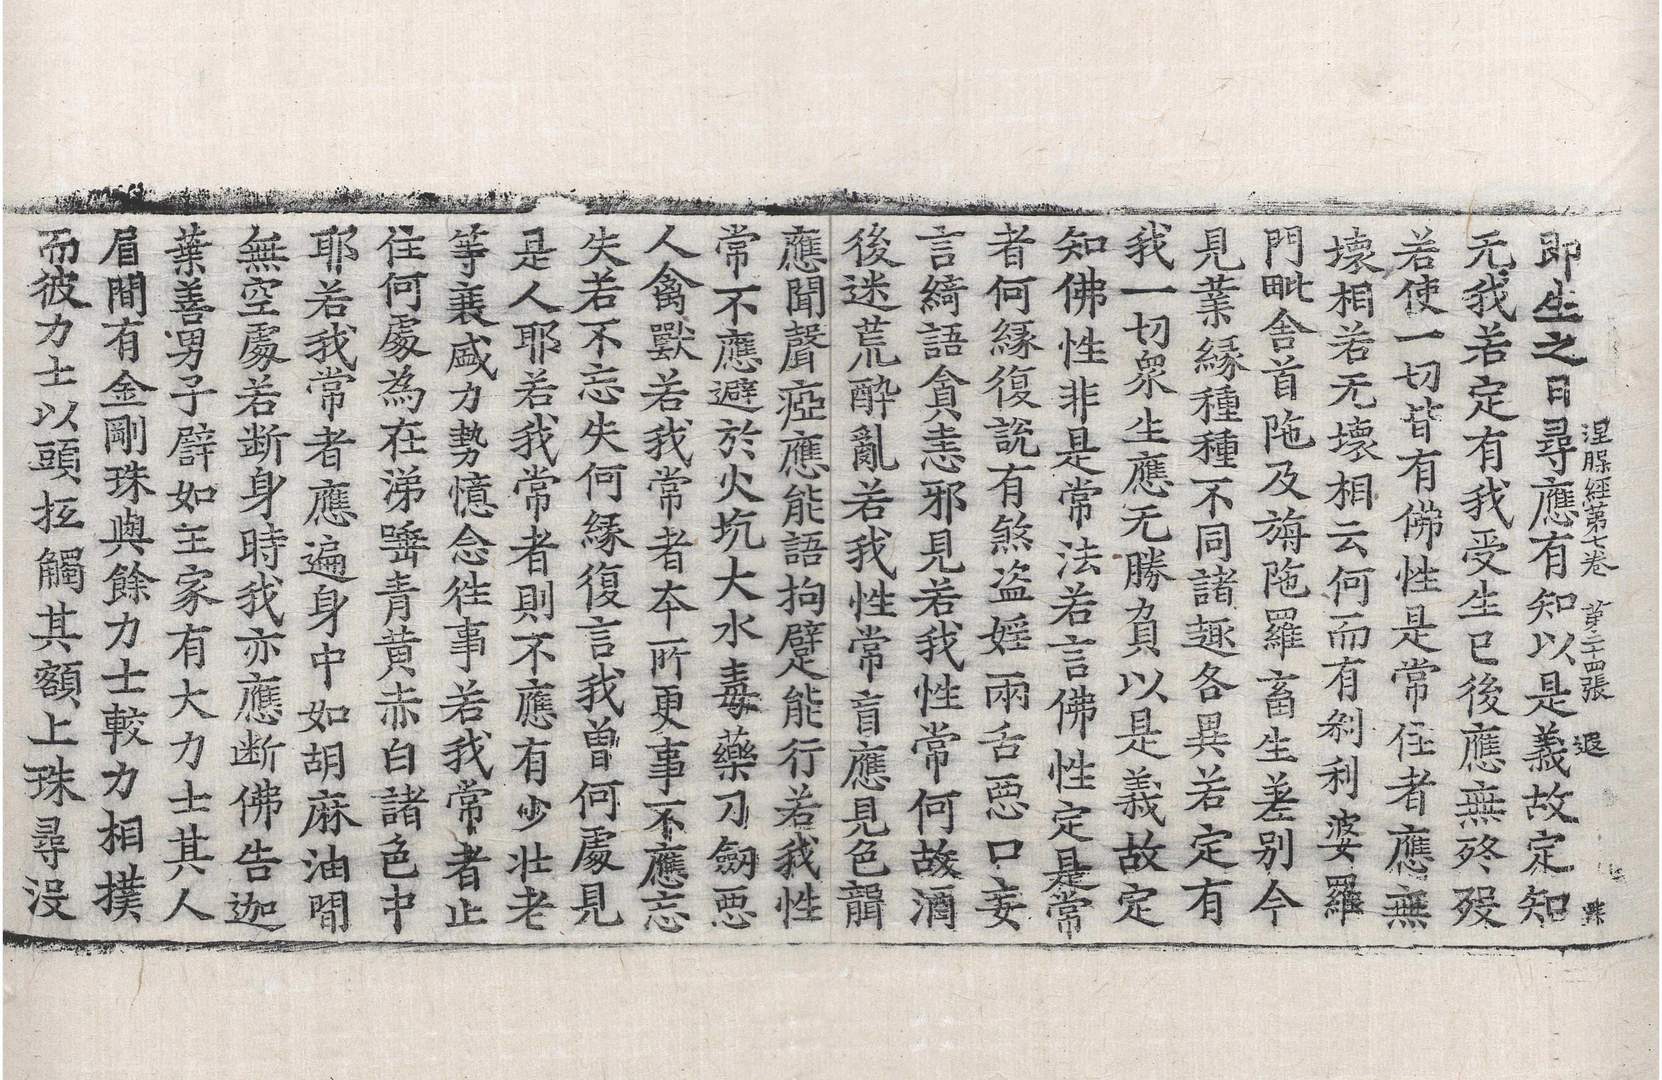 涅槃經第七卷 第二十四張 遐
即生之日尋應有知以是義故定知
无我若定有我受生已後應無終殁
若使一切皆有佛性是常住者應無
壞相若无壞相云何而有刹利婆羅
門毗舍首陁及旃陁羅畜生差别今
見業緣種種不同諸趣各異若定有
我一切衆生應无勝負以是義故定
知佛性非是常法若言佛性定是常
者何緣復說有煞盗婬兩舌惡口妄
言綺語貪恚邪見若我性常何故酒
後迷荒醉亂若我性常盲應見色聾
應聞聲瘂應能語拘躄能行若我性
常不應避於火坑大水毒藥刀劒惡
人禽獸若我常者夲所更事不應忘
失若不忘失何緣復言我曾何處見
是人耶若我常者則不應有少壮老
等衰盛力勢憶念徃事若我常者止
住何處為在涕唾青黄赤白諸色中
耶若我常者應遍身中如胡麻油間
無空處若断身時我亦應断佛告迦
葉善男子譬如王家有大力士其人
眉間有金剛珠與餘力士較力相撲
而彼力士以頭抵觸其額上珠尋没